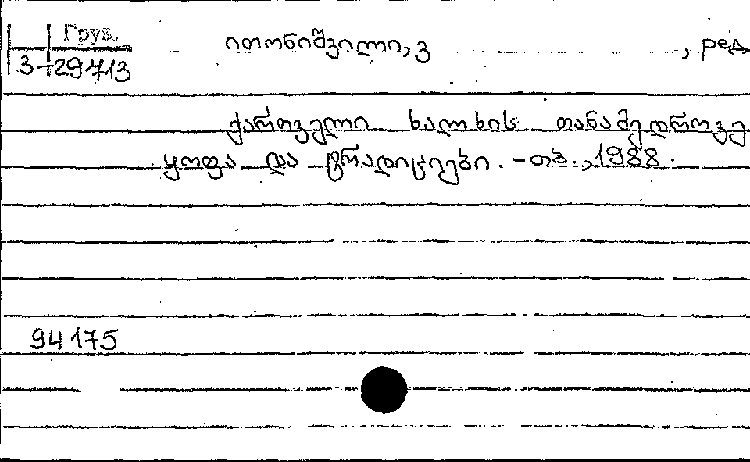 Груз.
3-29713
ითონიშვილი, ვ , ред
ქართველი ხალხის თანამედროვე
ყოფა და ტრადიციები. - თბ., 1988.
94175